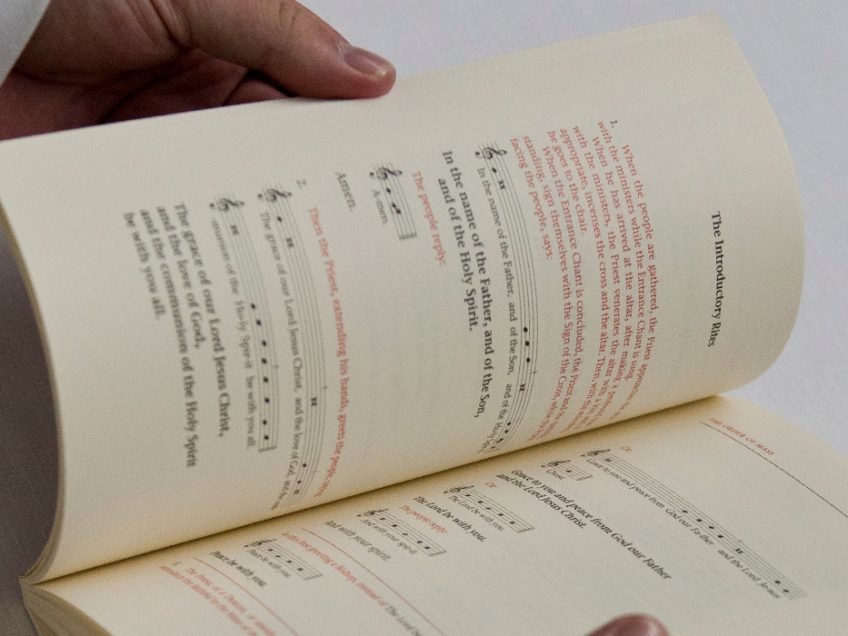 The Introductory Rites
1. When the people are gathered, the Priest
with the ministers while the Entrance Chant is sung.
When he has arrived at the altar, after making
with the ministers, the Priest venerates the altar with a
appropriate, incenses the cross and the altar. Then, with the
he goes to the chair.
When the Entrance Chant is concluded, the Priest and the
standing, sign themselves with the Sign of the Cross, while the
facing the people, says:
In the name of the Father, and of the Son, and of the Ho-ly
In the name of the Father, and of the Son,
and of the Holy Spirit.
The people reply:
A-men.
Amen.
2. Then the Priest, extending his hands, greets the people, saying:
The grace of our Lord Jesus Christ, and the love of God, and the com-
munion of the Ho-ly Spir-it be with you all.
The grace of our Lord Jesus Christ,
and the love of God,
and the communion of the Holy Spirit
be with you all.
THE ORDER OF MASS
Or:
Grace to you and peace from God our Fa-ther and the Lord Je-sus
Christ.
Grace to you and peace from God our Father
and the Lord Jesus Christ.
Or:
The Lord be with you.
The Lord be with you.
The people reply:
And with your spir-it.
And with your spirit.
In this first greeting a Bishop, instead of The Lord be
Peace be with you.
Peace be with you.
3. The Priest, or a Deacon, or another